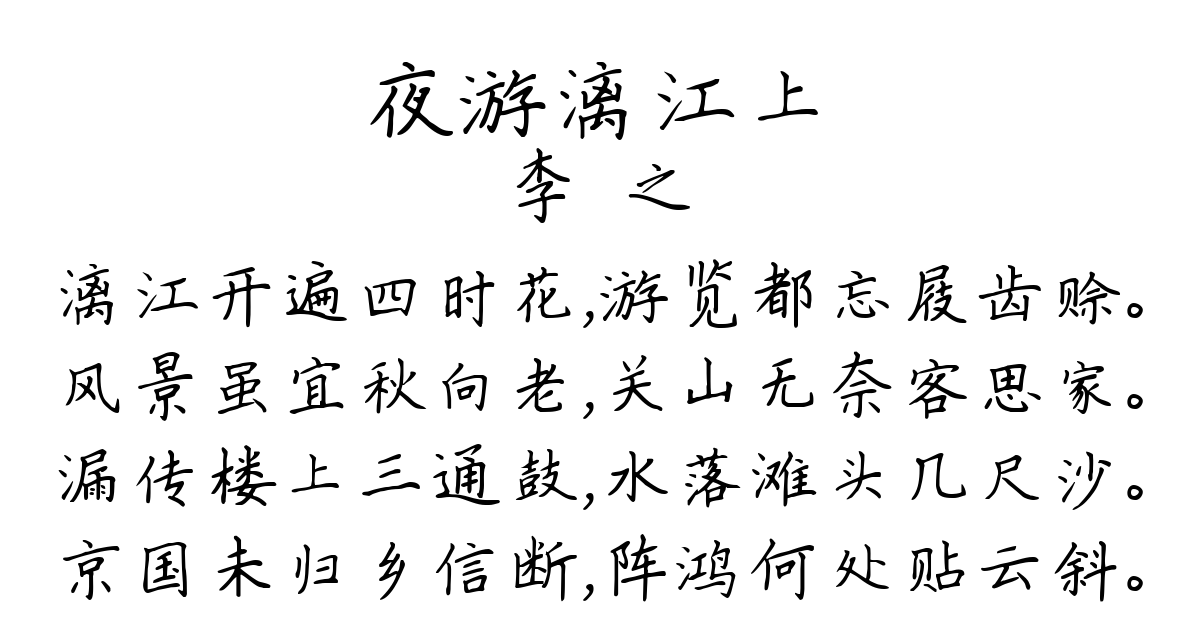 夜游漓江上
李 之
漓江开遍四时花,游览都忘屐齿赊。
风景虽宜秋向老,关山无奈客思家。
漏传楼上三通鼓,水落滩头几尺沙。
京国未归乡信断,阵鸿何处贴云斜。